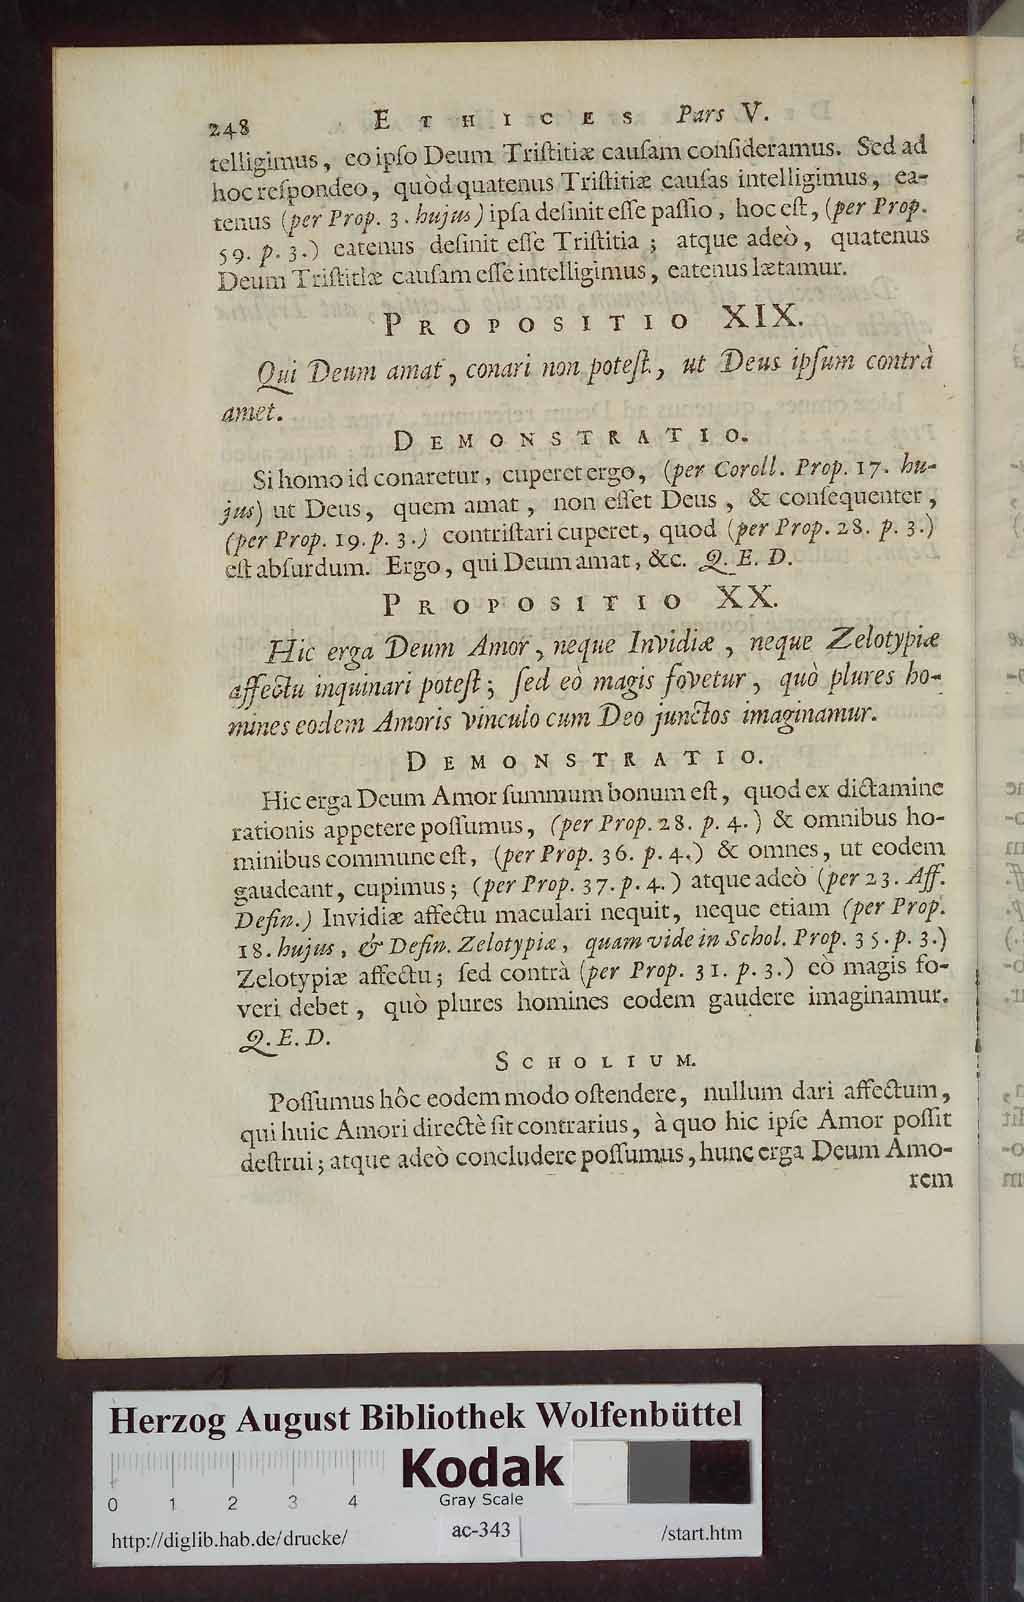 248 ETHICES Pars V.
telligimus, eo ipſo Deum Triſtitiæ cauſam conſideramus. Sed ad
hoc reſpondeo, quòd quatenus Triſtitiæ cauſas intelligimus, ea-
tenus (per Prop. 3. hujus) ipſa deſinit eſſe paſſio, hoc eſt, (per Prop.
59. p. 3.) eatenus deſinit eſſe Triſtitia; atque adeò, quatenus
Deum Triſtitiæ cauſam eſſe intelligimus, eatenus lætamur.
PROPOSITIO XIX.
Qui Deum amat, conari non poteſt, ut Deus ipſum contrà
amet.
DEMONSTRATIO.
Si homo id conaretur, cuperet ergo, (per Coroll. Prop. 17. hu-
jus) ut Deus, quem amat, non eſſet Deus, & conſequenter,
(per Prop. 19. p. 3.) contriſtari cuperet, quod (per Prop. 28. p. 3.)
eſt abſurdum. Ergo, qui Deum amat, &c. Q. E. D.
PROPOSITIO XX.
Hic erga Deum Amor, neque Invidiæ, neque Zelotypiæ
affectu inquinari poteſt; ſed eò magis fovetur, quò plures ho-
mines eodem Amoris vinculo cum Deo junctos imaginamur.
DEMONSTRATIO.
Hic erga Deum Amor ſummum bonum eſt, quod ex dictamine
rationis appetere poſſumus, (per Prop. 28. p. 4.) & omnibus ho-
minibus commune eſt, (per Prop. 36. p. 4.) & omnes, ut eodem
gaudeant, cupimus; (per Prop. 37. p. 4.) atque adeò (per 23. Aff.
Defin.) Invidiæ affectu maculari nequit, neque etiam (per Prop.
18. hujus, & Defin. Zelotypiæ, quam vide in Schol. Prop. 35. p. 3.)
Zelotypiæ affectu; ſed contrà (per Prop. 31. p. 3.) eò magis fo-
veri debet, quò plures homines eodem gaudere imaginamur.
Q. E. D.
SCHOLIUM.
Poſſumus hôc eodem modo oſtendere, nullum dari affectum,
qui huic Amori directè ſit contrarius, à quo hic ipſe Amor poſſit
deſtrui; atque adeò concludere poſſumus, hunc erga Deum Amo-
rem
Herzog August Bibliothek Wolfenbüttel
Kodak
Gray Scale
0 1 2 3 4
http://diglib.hab.de/drucke/ ac-343 /start.htm